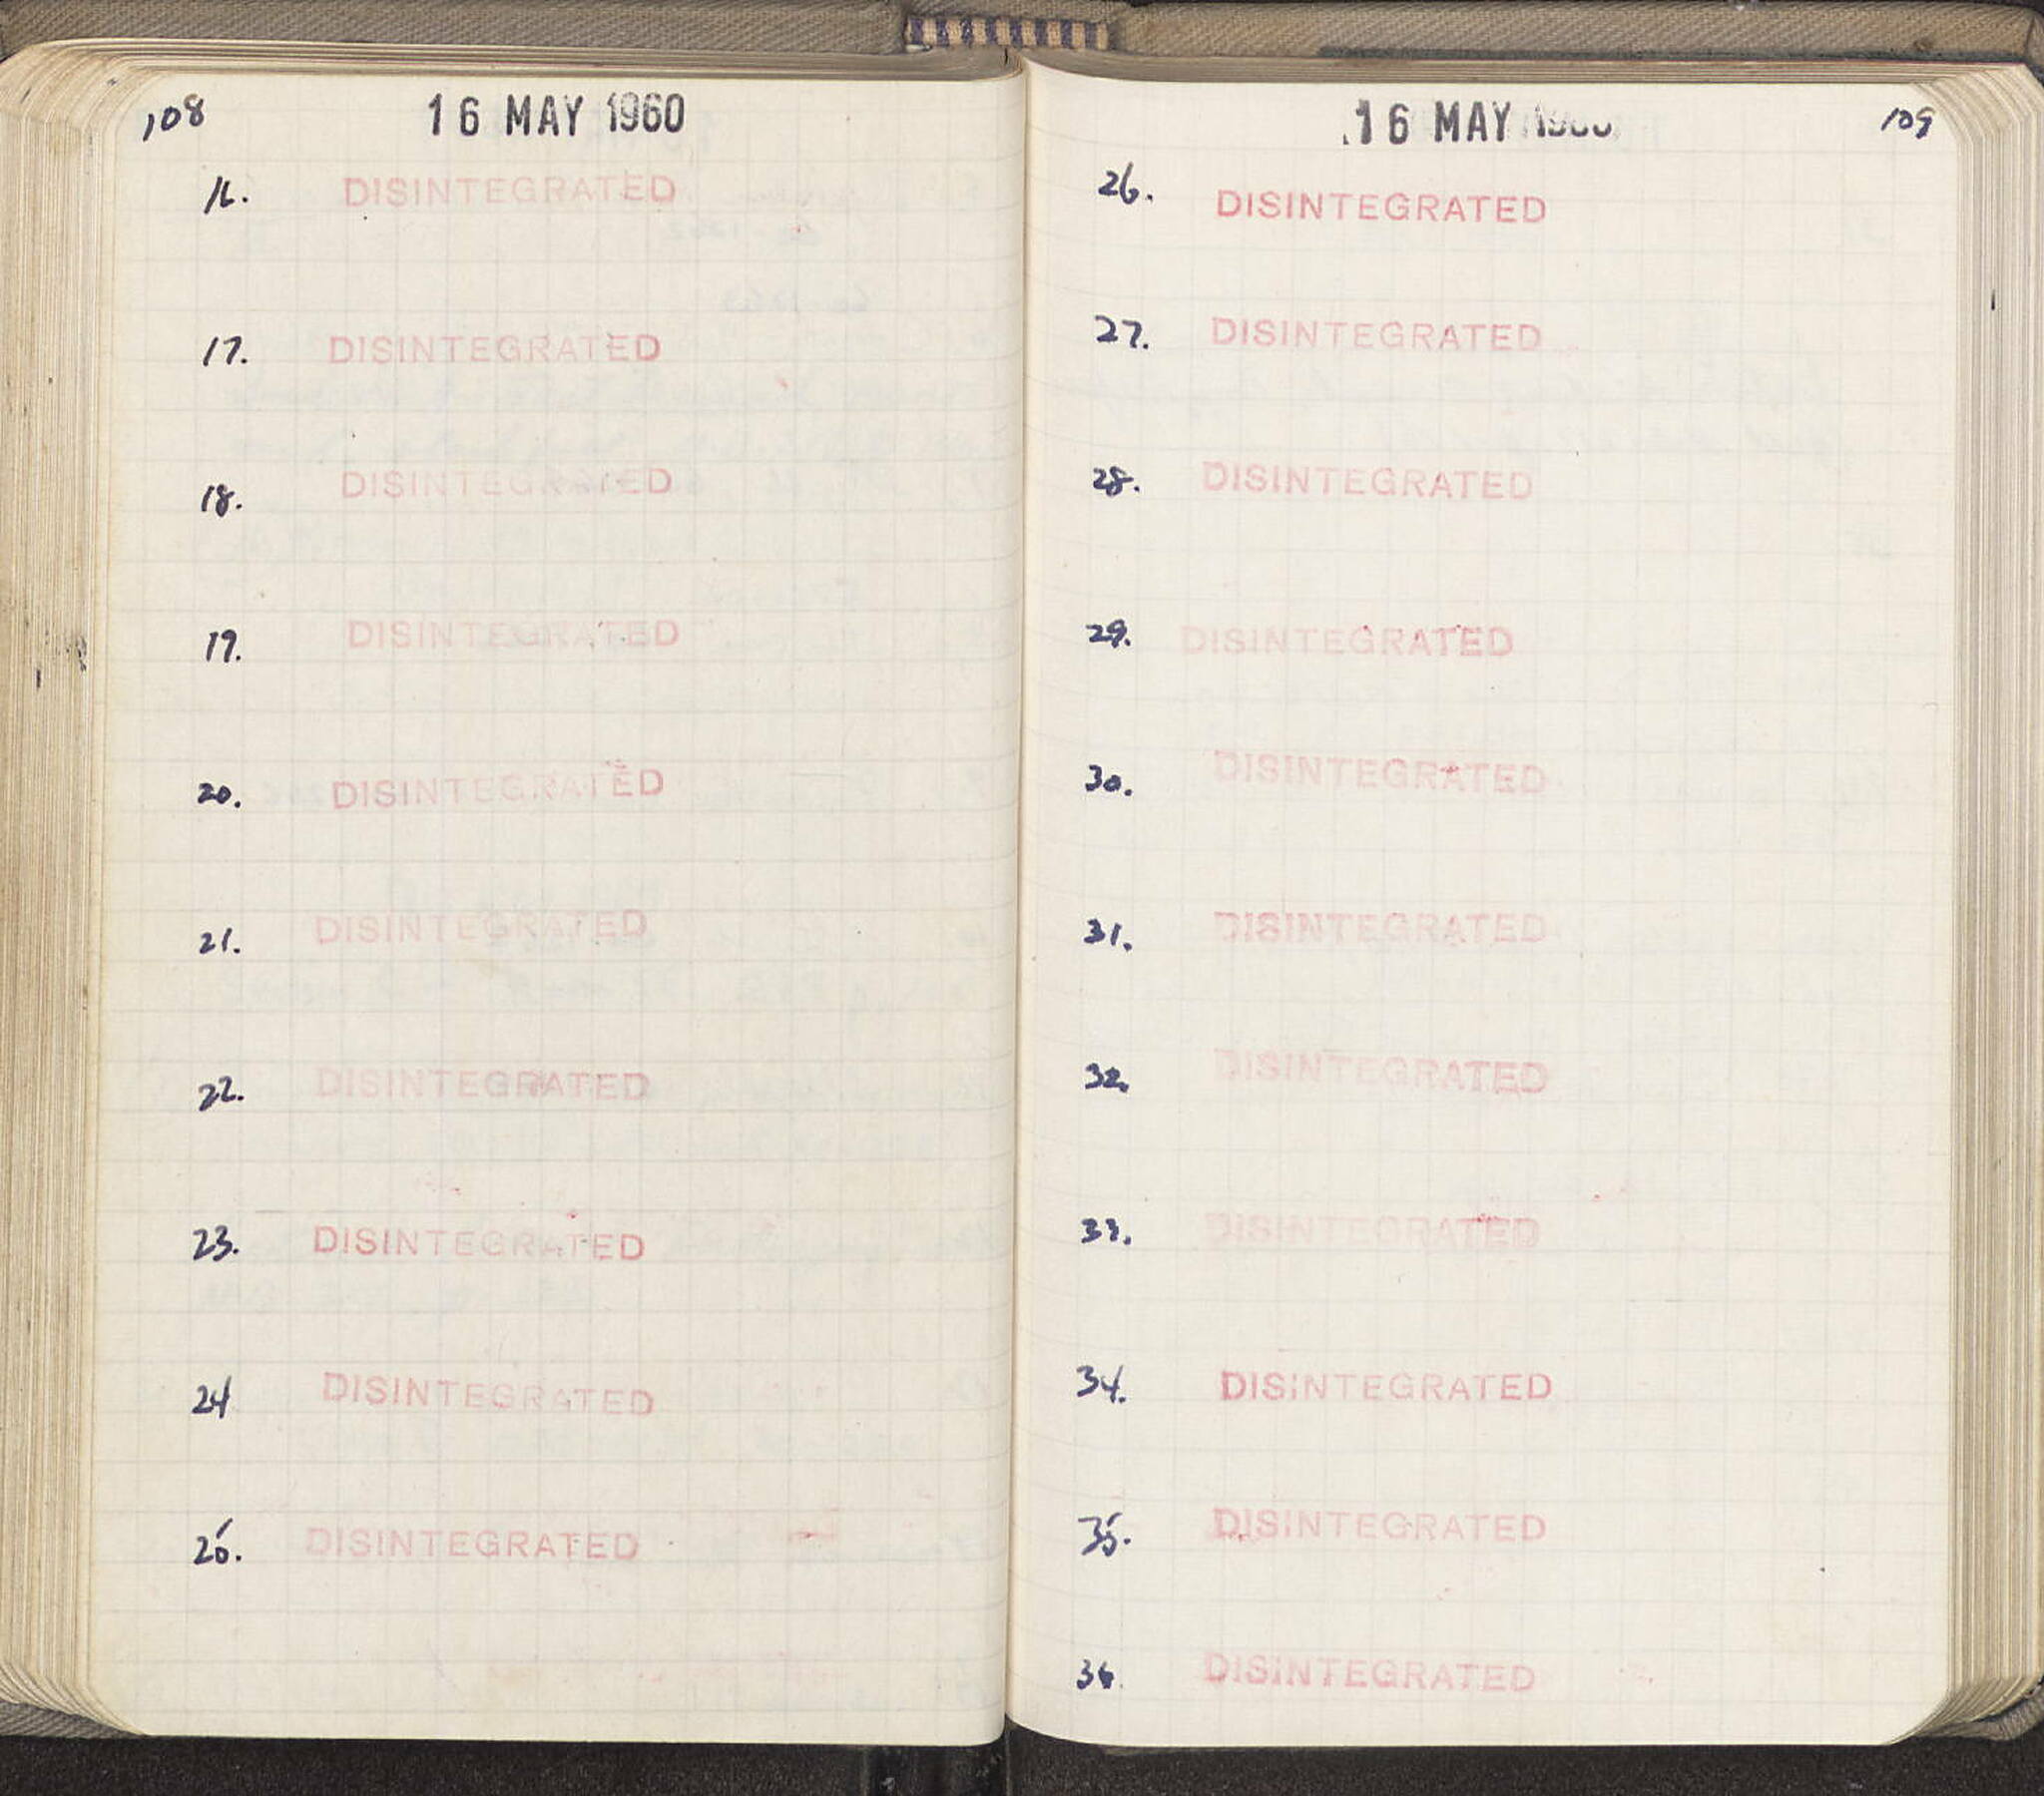 108
16 MAY 1960
16. DISINTEGRATED
17. DISINTEGRATED
18. DISINTEGRATED
19. DISINTEGRATED
20. DISINTEGRATED
21. DISINTEGRATED
22. DISINTEGRATED
23. DISINTEGRATED
24 DISINTEGRATED
25. DISINTEGRATED
16 MAY 1960
109
26. DISINTEGRATED
27. DISINTEGRATED
28. DISINTEGRATED
29. DISINTEGRATED
30. DISINTEGRATED
31. DISINTEGRATED
32. DISINTEGRATED
33. DISINTEGRATED
34. DISINTEGRATED
35. DISINTEGRATED
36. DISINTEGRATED